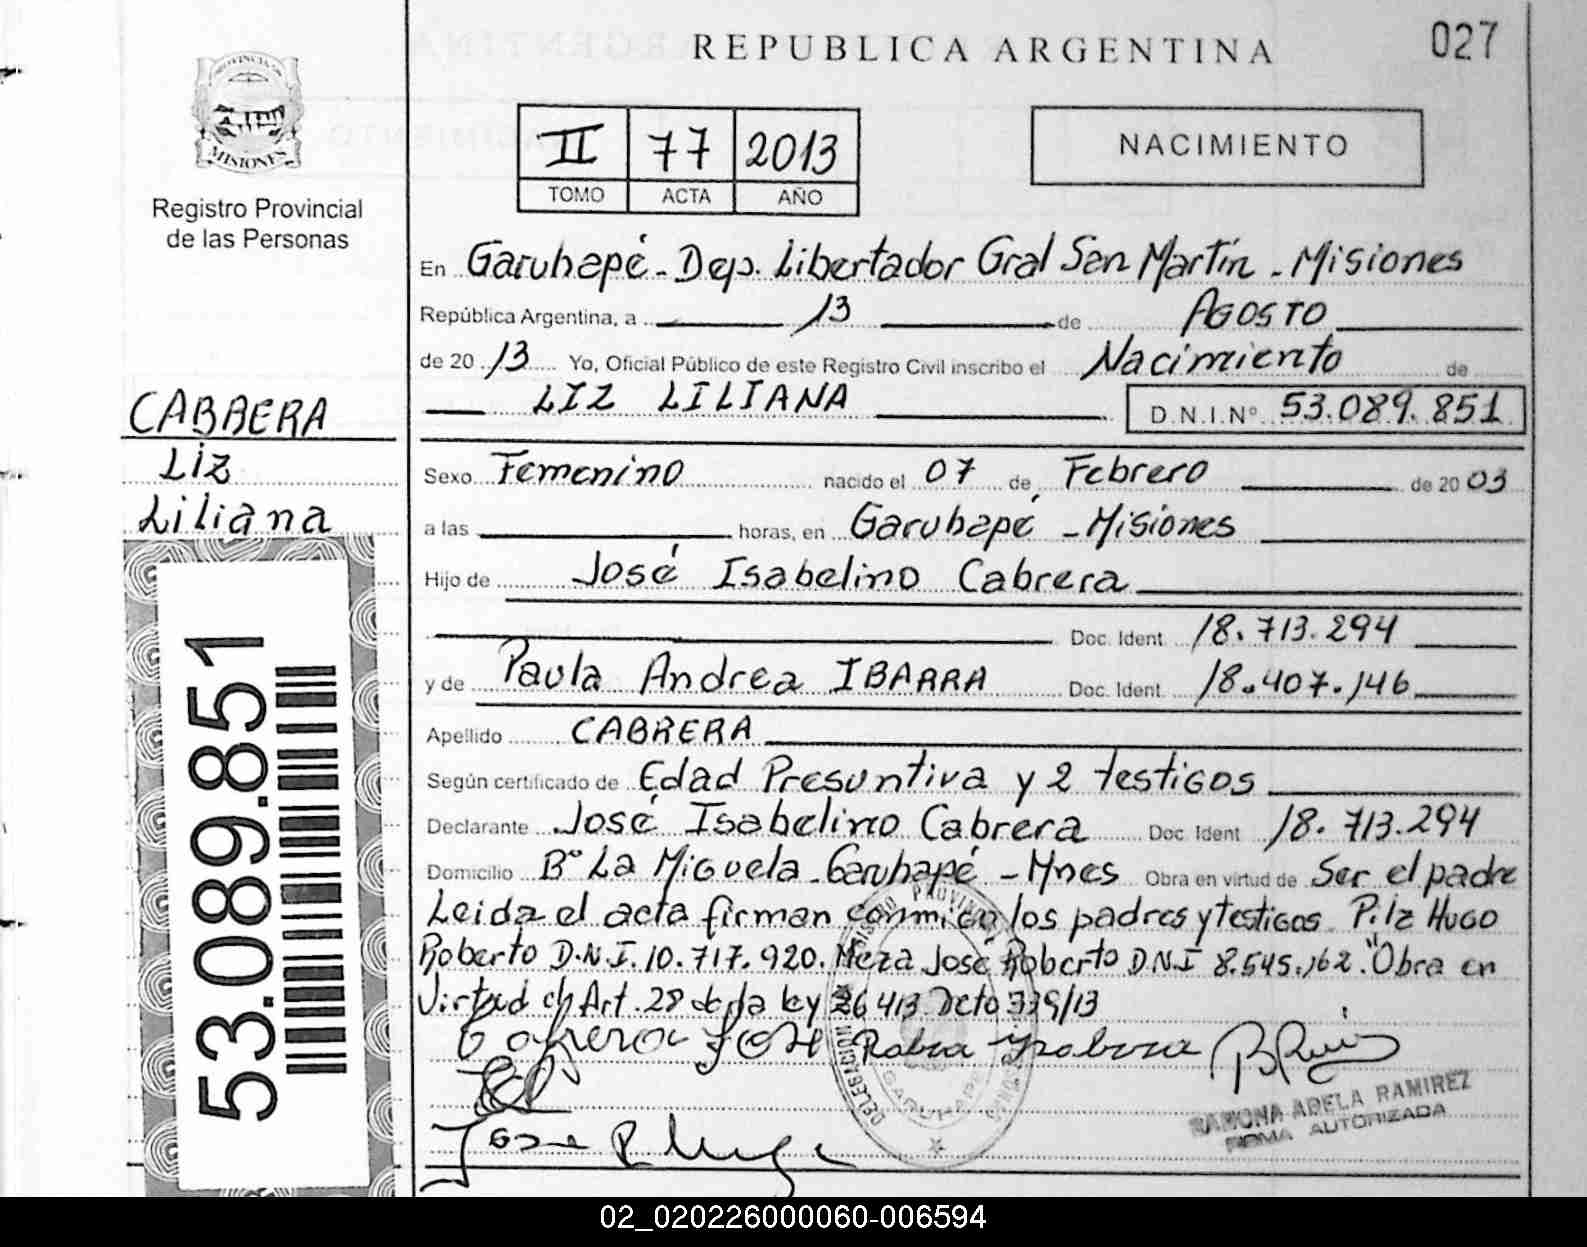 REPUBLICA ARGENTINA
027
PROVINCIA DE
MISIONES
Registro Provincial
de las Personas
II 77 2013
TOMO ACTA AÑO
NACIMIENTO
En Garuhapé - Dep. Libertador Gral San Martín - Misiones
República Argentina, a 13 de AGOSTO
de 20 13 Yo, Oficial Público de este Registro Civil inscribo el Nacimiento de
LIZ LILIANA D.N.I.Nº 53.089.851
CABRERA
Liz
Liliana
Sexo Femenino nacido el 07 de Febrero de 20 03
a las horas, en Garuhapé - Misiones
Hijo de José Isabelino Cabrera
Doc. Ident. 18.713.294
y de Paula Andrea IBARRA Doc. Ident. 18.407.146
Apellido CABRERA
Según certificado de Edad Presuntiva y 2 testigos
Declarante José Isabelino Cabrera Doc. Ident 18.713.294
Domicilio Bº La Miguela - Garuhapé - Mnes Obra en virtud de Ser el padre
Leida el acta firman conmigo los padres y testigos Pilz Hugo
Roberto D.N.I. 10.717.920. Meza José Roberto D.N.I 8.545.162. "Obra en
Virtud Art. 28 de la ley 26413 Dcto 339/13
53.089.851
GARUHAPE
RAMONA ADELA RAMIREZ
FIRMA AUTORIZADA
02_020226000060-006594